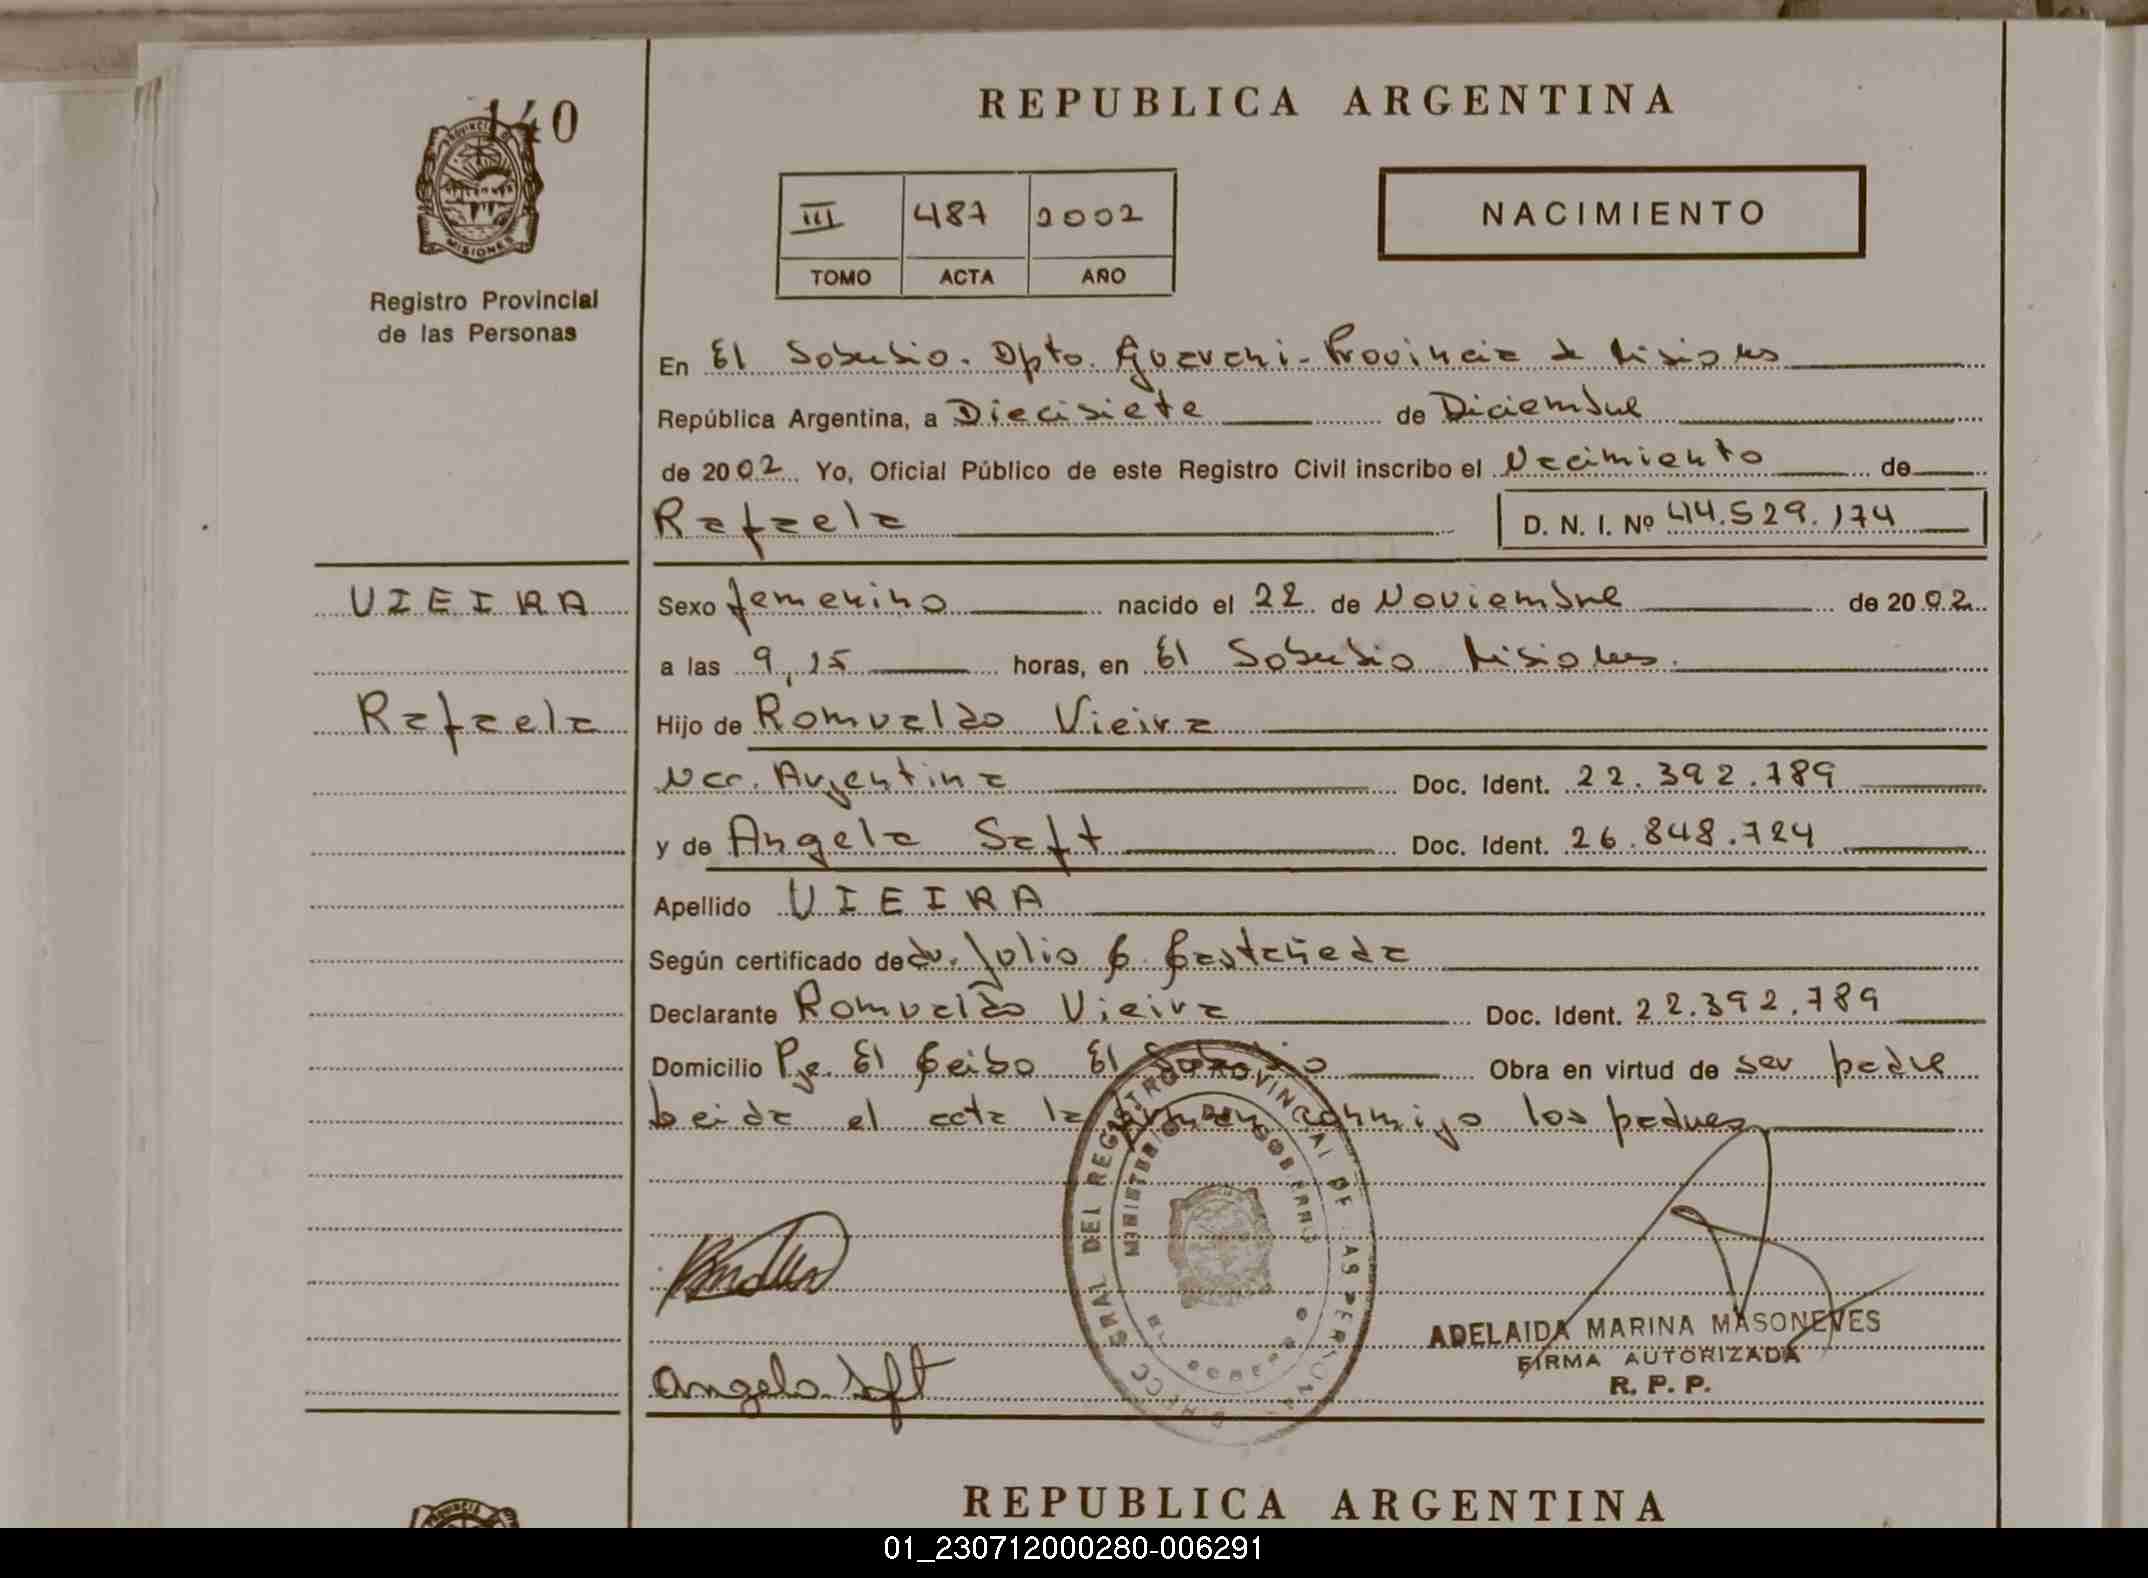 140
PROVINCIA DE
MISIONES
Registro Provincial
de las Personas
REPUBLICA ARGENTINA
III 487 2002
TOMO ACTA AÑO
NACIMIENTO
En El Soberbio. Dpto. Guarani - Provincia de Misiones
República Argentina, a Diecisiete de Diciembre
de 2002 Yo, Oficial Público de este Registro Civil inscribo el Nacimiento de
Rafaela D. N. I. Nº 44.529.174
VIEIRA
Rafaela
Sexo femenino nacido el 22 de Noviembre de 2002
a las 9,15 horas, en El Soberbio Misiones.
Hijo de Romualdo Vieira
Nac. Argentina Doc. Ident. 22.392.789
y de Angela Saft Doc. Ident. 26.848.724
Apellido VIEIRA
Según certificado de dr. Julio C. Castañeda
Declarante Romualdo Vieira Doc. Ident. 22.392.789
Domicilio Pje. El Ceibo El Soberbio Obra en virtud de ser padre
Leida el acta la firman conmigo los padres
GRAL DEL REGISTRO PROVINCIAL DE LAS PERSONAS
MINISTERIO DE GOBIERNO
Angela Saft
ADELAIDA MARINA MASONEVES
FIRMA AUTORIZADA
R. P. P.
REPUBLICA ARGENTINA
01_230712000280-006291